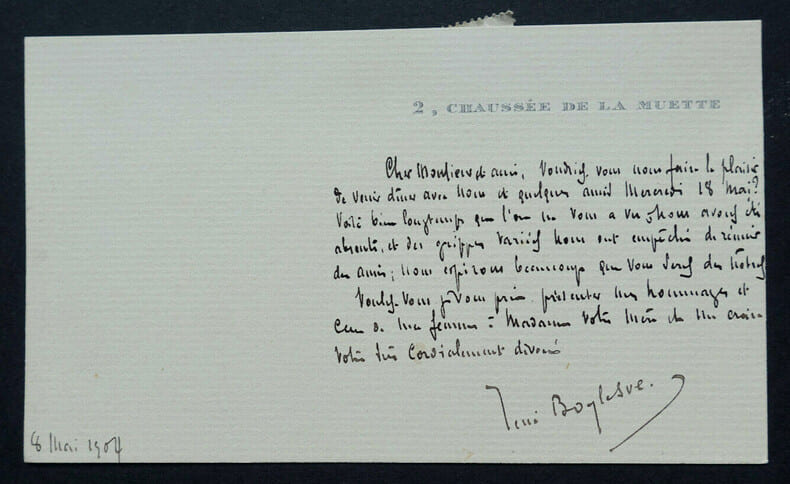 2, CHAUSSÉE DE LA MUETTE
Cher Monsieur et ami, Voudriez vous nous faire le plaisir
de venir dîner avec nous et quelques amis Mercredi 18 Mai?
Voilà bien longtemps que l'on ne vous a vu; nous avons été
absents, et des grippes variées nous ont empêché de réunir
des amis; nous espérons beaucoup que vous serez des nôtres
Voulez-vous je vous prie, présenter mes hommages et
ceux de ma femme à Madame votre Mère et me croire
votre très cordialement dévoué
René Boylesve.
8 Mai 1904